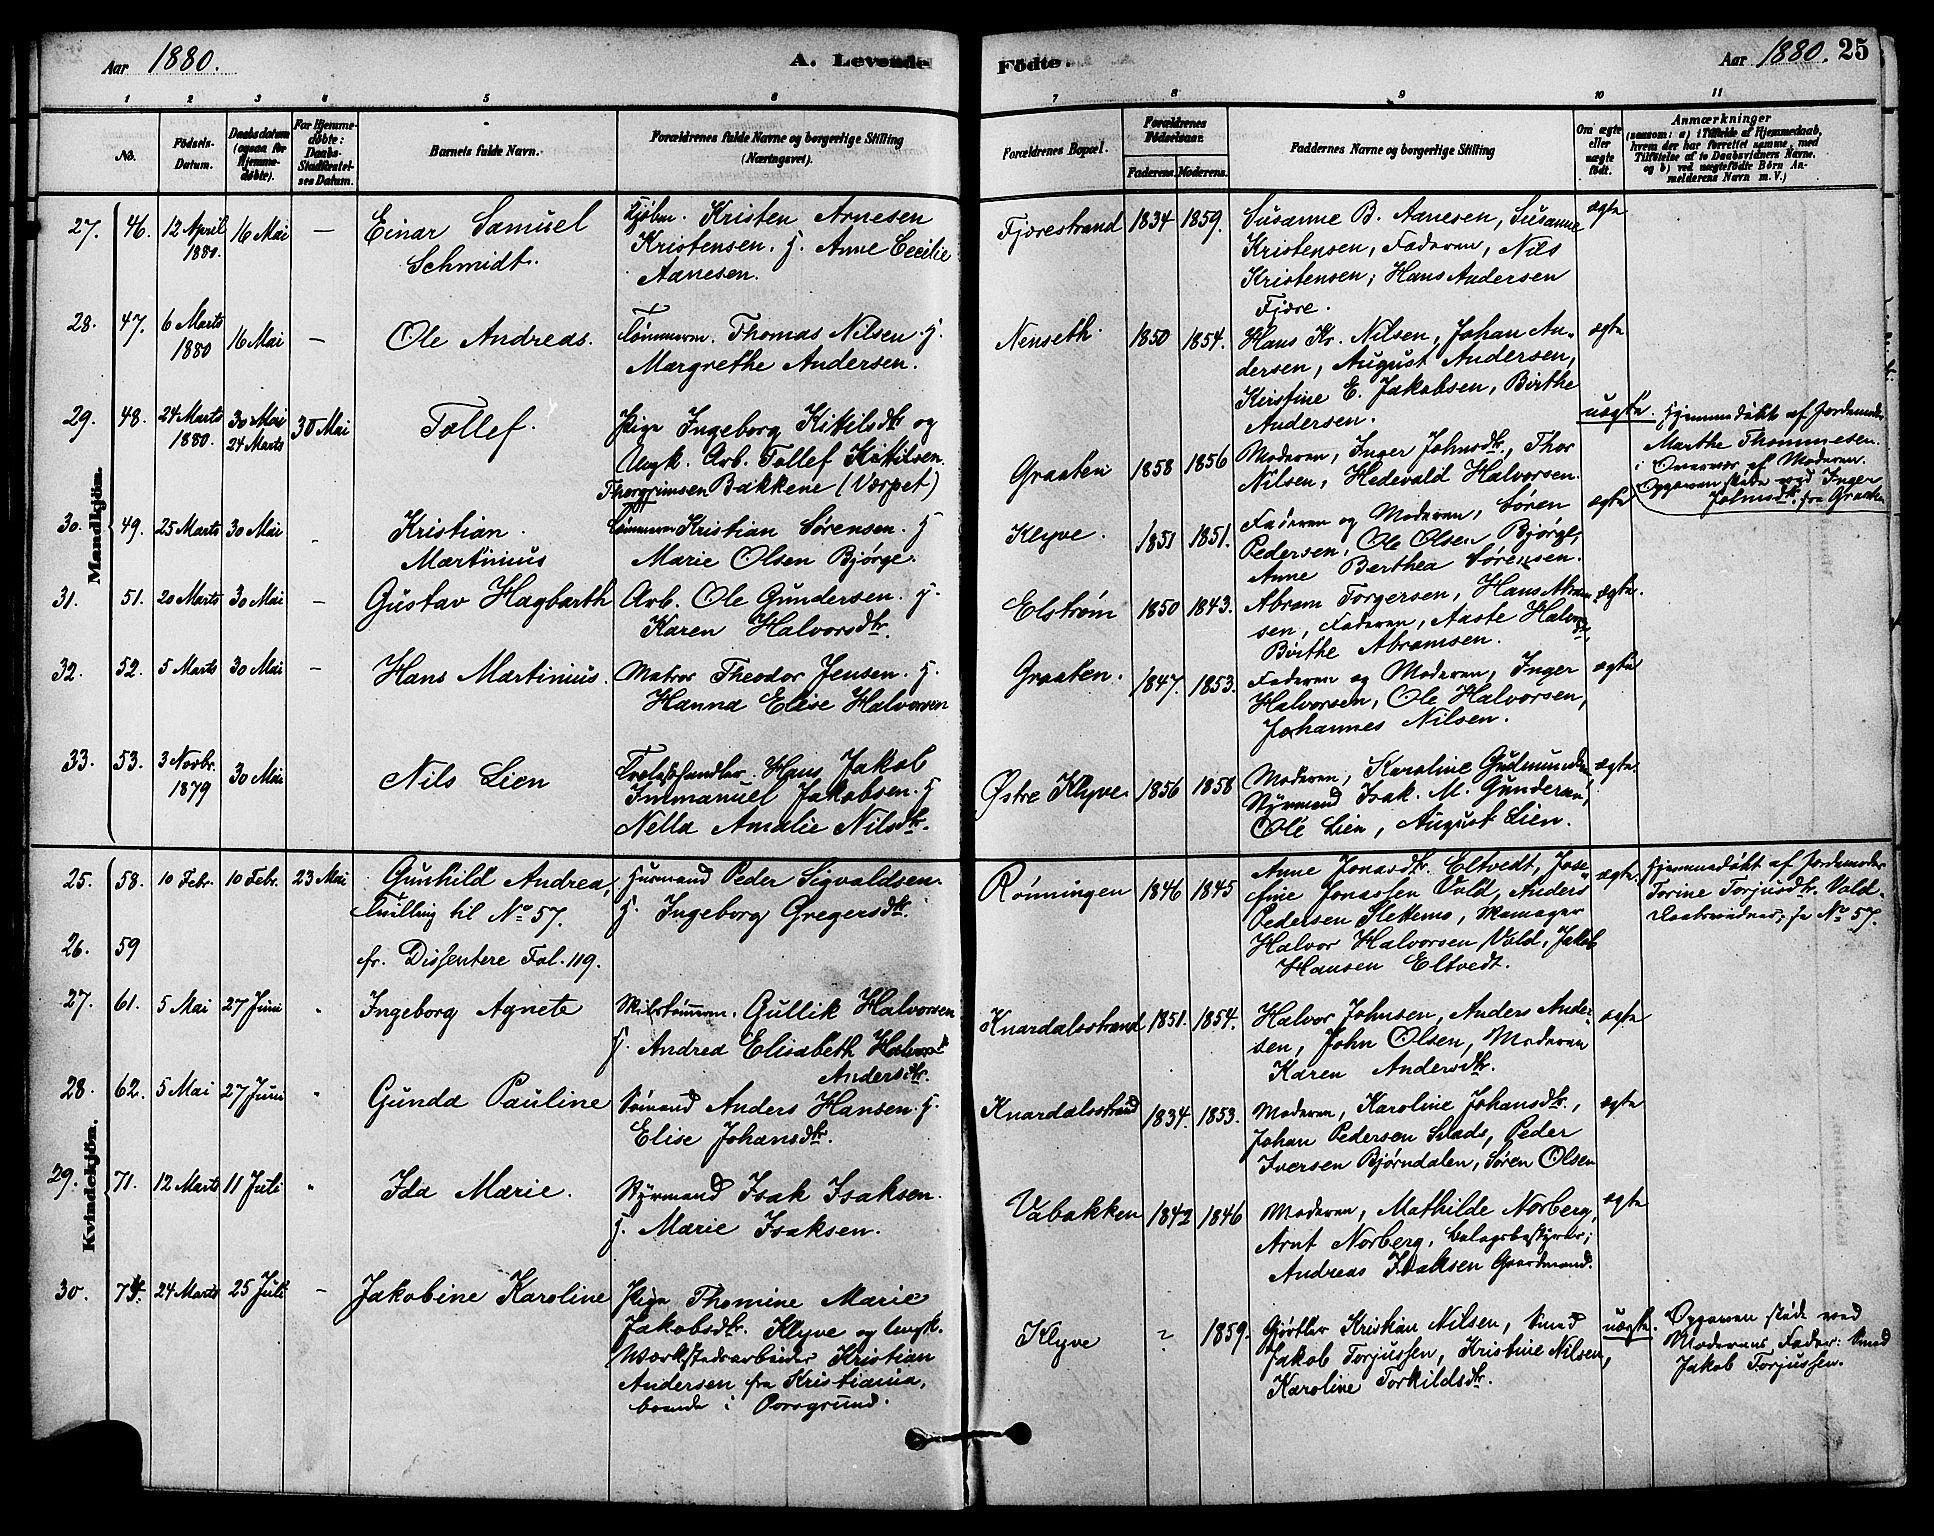 Aar 1880. A. Levende Fødte. Aar 1880. 25
1 2 3 4 5 6 7 8 9 10 11
No. Fødsels-Datum. Daabsdatum (ogsaa for Hjemme-døbte). For Hjemme-døbte: Daabs-Stadfæstel-ses Datum. Barnets fulde Navn. Forældrenes fulde Navne og borgerlige Stilling (Næringsvei). Forældrenes Bopæl. Forældrenes Fødselsaar. Faderens. Moderens. Faddernes Navne og borgerlige Stilling Om ægte eller uægte født. Anmærkninger
(saasom: a) i Tilfælde af Hjemmedaab,
hvem der har forrettet samme, med
Tilføielse af to Daabsvidners Navne,
og b) ved uægtefødte Børn An-
melderens Navn m. V.)
Mandkjön.
27. 46. 12 April 1880. 16 Mai —
Einar Samuel
Schmidt.
Kjøbm. Kristen Arnesen
Kristensen. H. Anne Cecilie
Aanesen.
Fjærestrand 1834 1859.
Susanne B. Aanesen, Susanne
Kristensen, Faderen, Nils
Kristensen, Hans Andersen
Fjære.
ægte
28. 47. 6 Marts 1880 16 Mai —
Ole Andreas.
Tømmerm. Thomas Nilsen. H.
Margrethe Andersen.
Nenseth. 1850 1854.
Hans Kr. Nilsen, Johan An-
dersen, August Andersen,
Kirstine E. Jakobsen, Birthe
Andersen.
ægte
29. 48. 24 Marts 1880. 30 Mai 24 Marts 30 Mai
Tollef.
Pige Ingeborg Kittilsdtr og
Ungk. Arb. Tollef Kittilsen
Thorgrimsen Bakkene (Værpet)
Graaten 1858 1856
Moderen, Inger Johnsdtr, Thor
Nilsen, Hedevald Halvorsen.
uægte.
Hjemmedøbt af Jordemoder
Marthe Thommesen.
i Overvær af Moderen.
Opgaven skede ved Inger
Johnsdtr. fra Graaten
30. 49. 25 Marts 30 Mai -
Kristian
Martinius
Tømmerm Kristian Sørensen. H
Marie Olsen Bjørge.
Klyve. 1851 1851.
Faderen og Moderen, Søren
Pedersen, Ole Olsen Bjørge,
Anne Berthea Sørensen.
ægte
31. 51. 20 Marts 30 Mai —
Gustav Hagbarth
Arb. Ole Gundersen. H.
Karen Halvorsdtr.
Elstrøm 1850 1843.
Abram Torgersen, Hans Abram-
sen, Faderen, Aaste Halvorsdtr
Birthe Abramsen.
ægte.
32. 52. 5 Marts 30 Mai —
Hans Martinius.
Matros Theodor Jensen. H.
Hanna Elise Halvorsen
Graaten. 1847. 1853.
Faderen og Moderen, Inger
Halvorsen, Ole Halvorsen,
Johannes Nilsen.
ægte
33. 53. 3 Novbr. 1879 30 Mai
Nils Lien
Trælasthandler. Hans Jakob
Immanuel Jakobsen. H
Nella Amalie Nilsdtr.
Østre Klyve. 1856 1858
Moderen, Karoline Gudmundsen,
Styrmand Isak. M. Gundersen,
Ole Lien, August Lien.
ægte.
Kvindekjön.
25. 58. 10 Febr. 10 Febr. 23 Mai
Gunhild Andrea,
Tvilling til No 57.
Husmand Peder Sigvaldsen.
H. Ingeborg Gregersdtr.
Rønningen 1846 1845
Anne Jonasdtr. Eltvedt, Jose-
fine Jonassen Vold, Anders
Pedersen Slettemo, Skomager
Halvor Halvorsen Vold, Jakob
Hansen Eltvedt.
ægte.
Hjemmedøbt af Jordemoder
Torine Torjusdtr. Vold-
Daabsvidner; se No 57.
26. 59
fr. Dissentere Fol. 119.
27. 61. 5 Mai 27 Juni "
Ingeborg Agnete
Skibstømmerm. Gullik Halvorsen
H. Andrea Elisabeth
Andersdtr.
Knardalsstrand 1851. 1854.
Halvor Johnsen, Anders Ander-
sen, John Olsen, Moderen
Karen Andersdtr.
ægte
28. 62. 5 Mai 27 Juni "
Gunda Pauline
Sømand Anders Hansen. H.
Elise Johansdtr.
Knardalsstrand 1834. 1853.
Moderen, Karoline Johansdtr.,
Johan Pedersen Plads, Peder
Iversen Bjørndalen, Søren Olsen
ægte
29. 71. 12 Marts 11 Juli "
Ida Marie.
Styrmand Isak Isaksen.
H. Marie Isaksen.
Vabakken 1842 1846
Moderen, Mathilde Norberg,
Arnt Norberg, Bolagsbestyrer;
Andreas Isaksen Gaardmand.
ægte
30. 74. 24 Marts 25 Juli —
Jakobine Karoline
Pige Thomine Marie
Jakobsdtr. Klyve og Ungk.
Værkstedsarbeider Kristian
Andersen fra Kristiania,
boende i Porsgrund.
Klyve " 1859.
Gjørtler Kristian Nilsen, Smed
Jakob Torjussen, Kristine Nilsen,
Karoline Torkildsdtr.
uægte.
Opgaven skede ved
Moderens Fader: Smed
Jakob Torjussen.